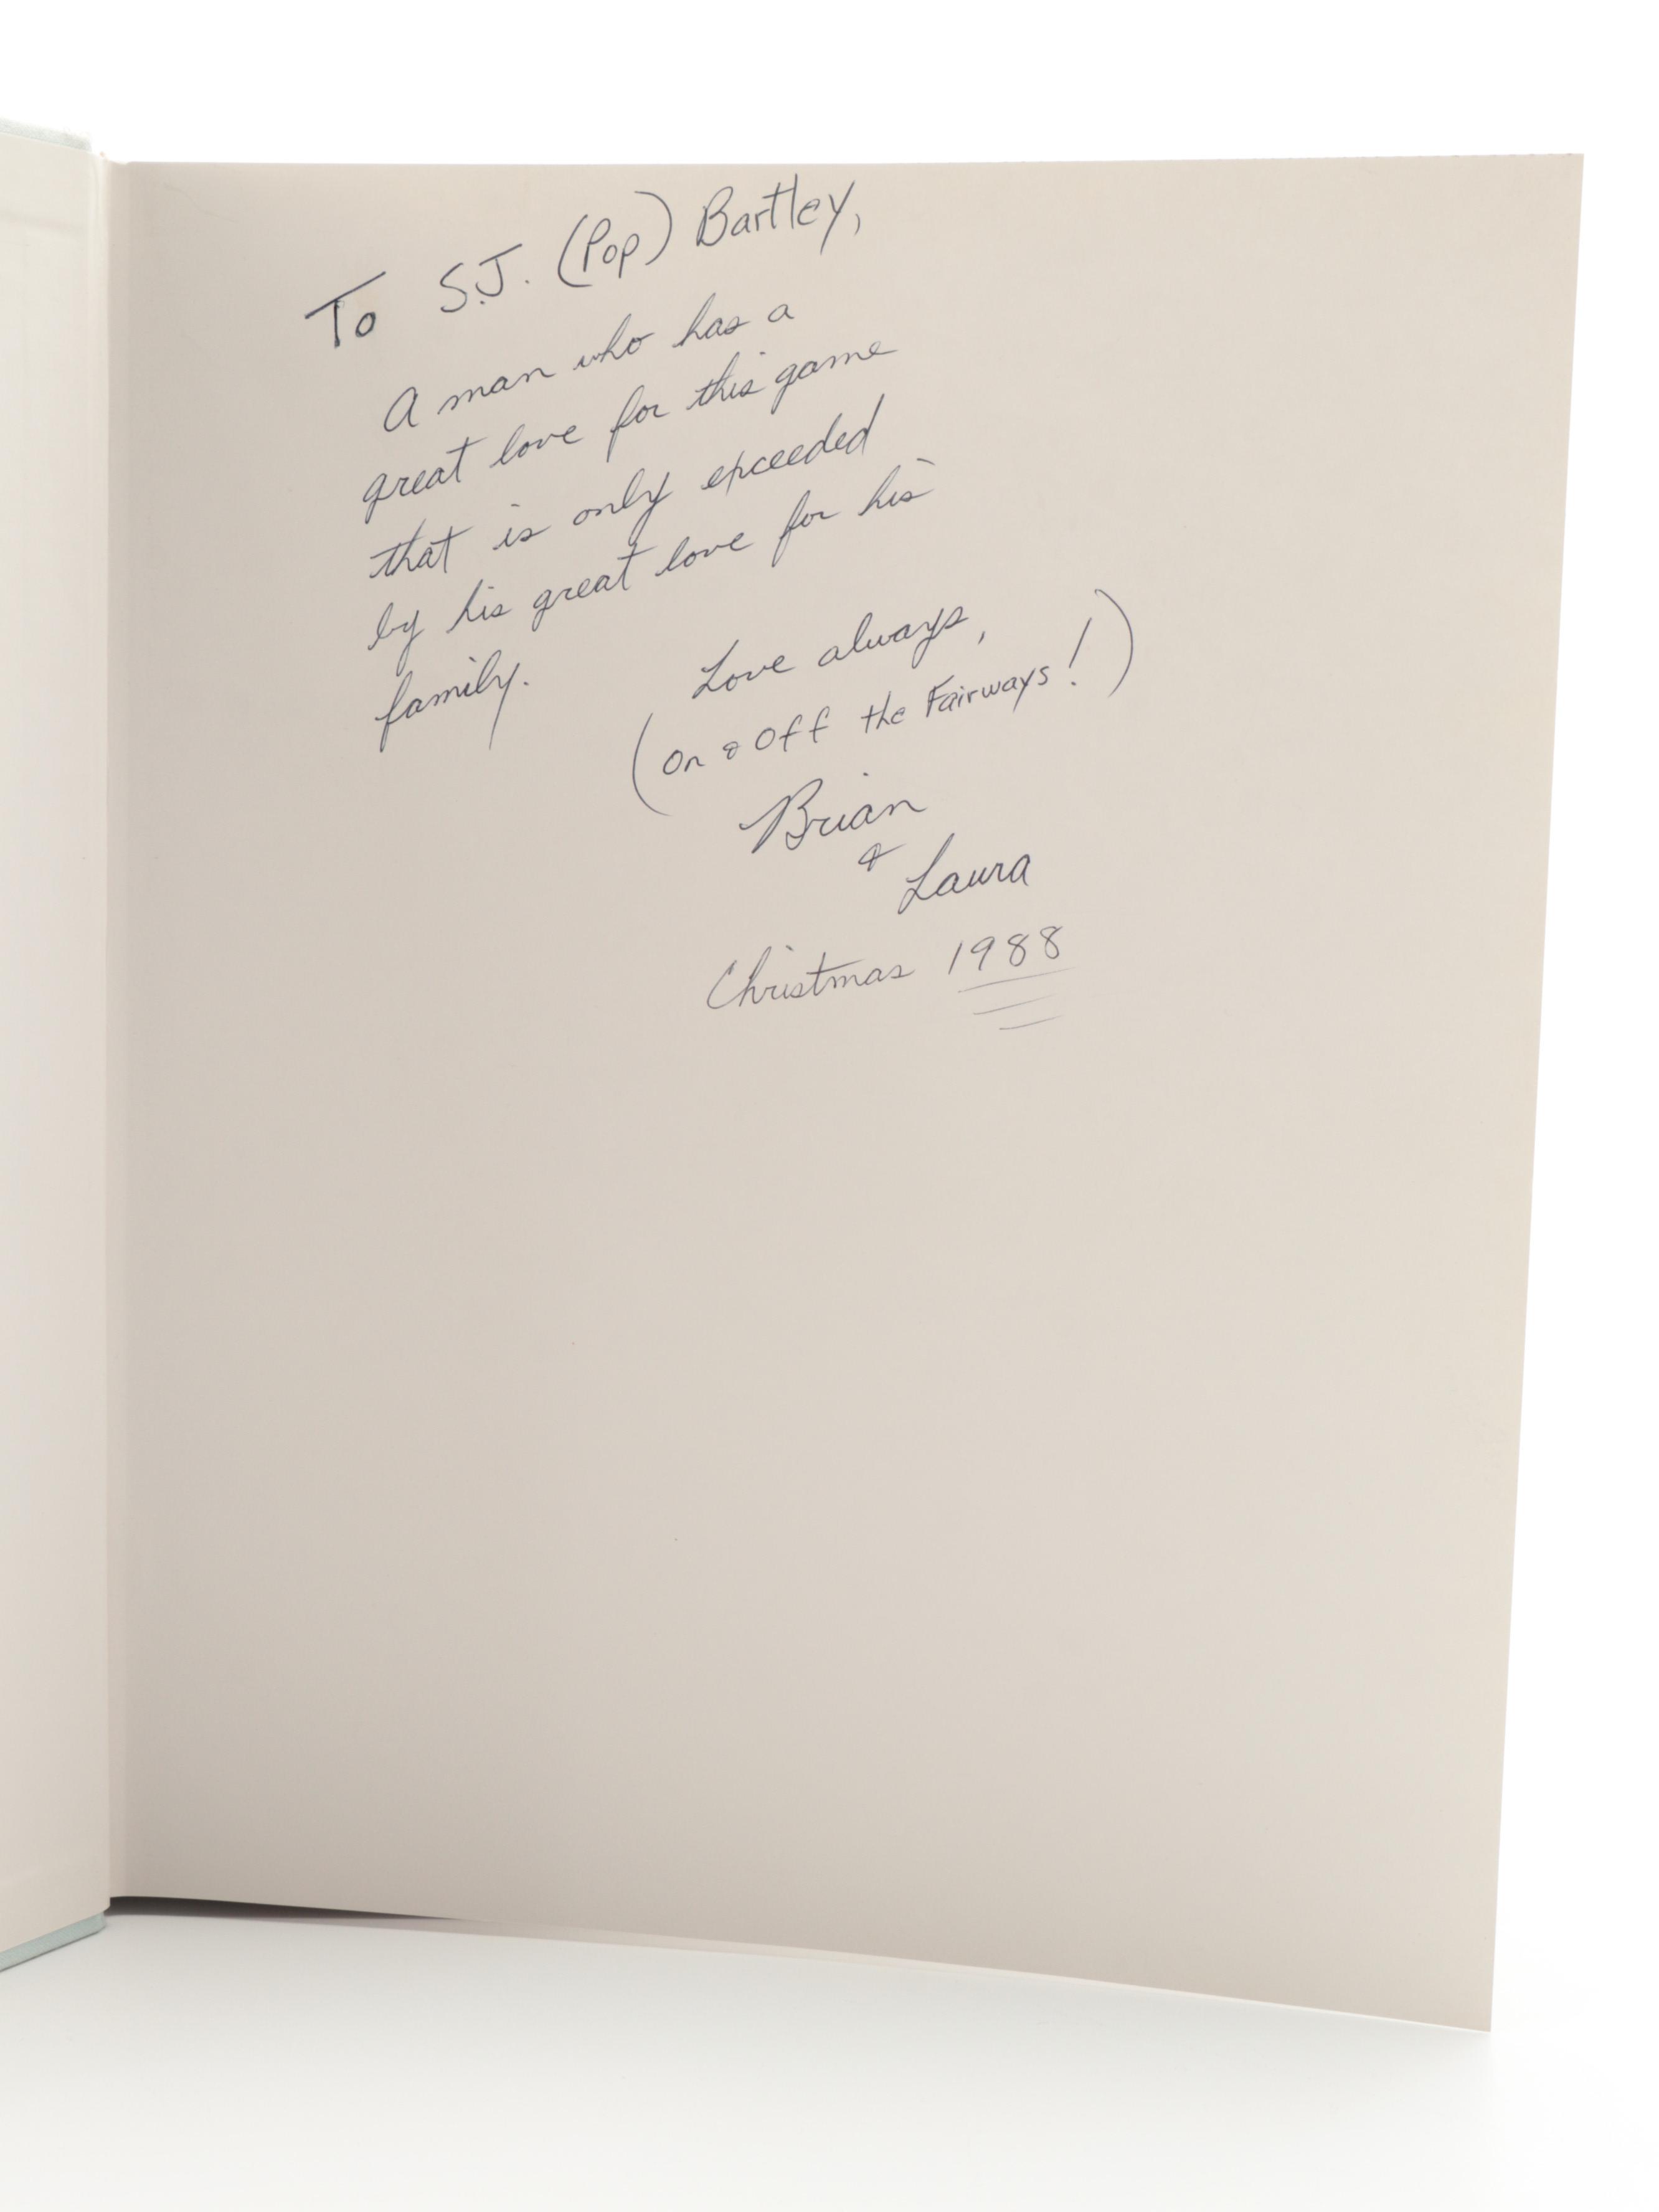 To S.J. (Pop) Bartley,
A man who has a
great love for this game
that is only exceeded
by his great love for his
family.
Love always,
(On & Off the Fairways!)
Brian
&
Laura
Christmas 1988